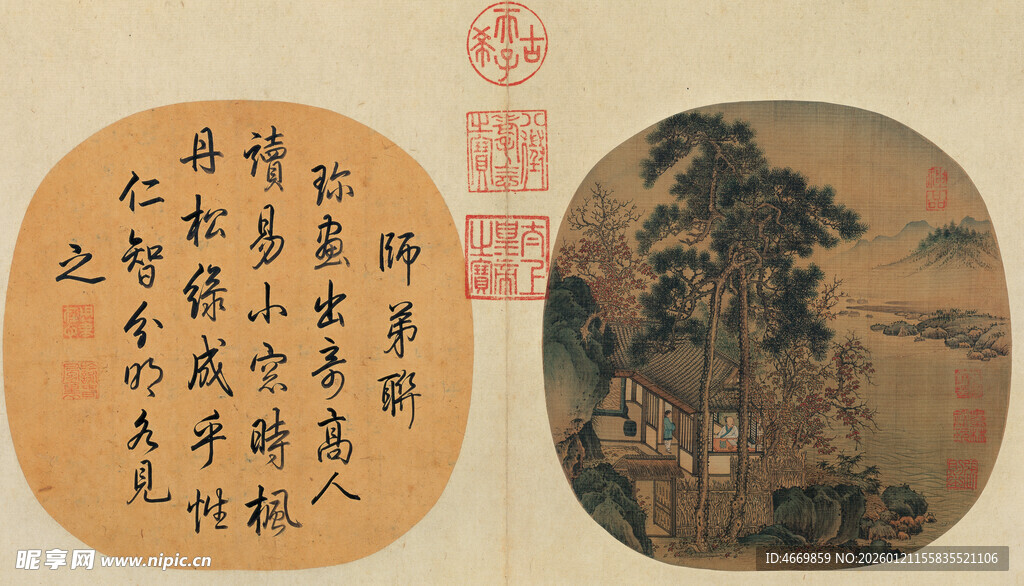 師弟聯
珎畫出奇高人
讀易小窓時楓
丹松綠成乎性
仁智分明各見
之
古希天子
八徵耄念之寶
太上皇帝之寶
昵享网 www.nipic.cn
ID:4669859 NO:20260121155835521106